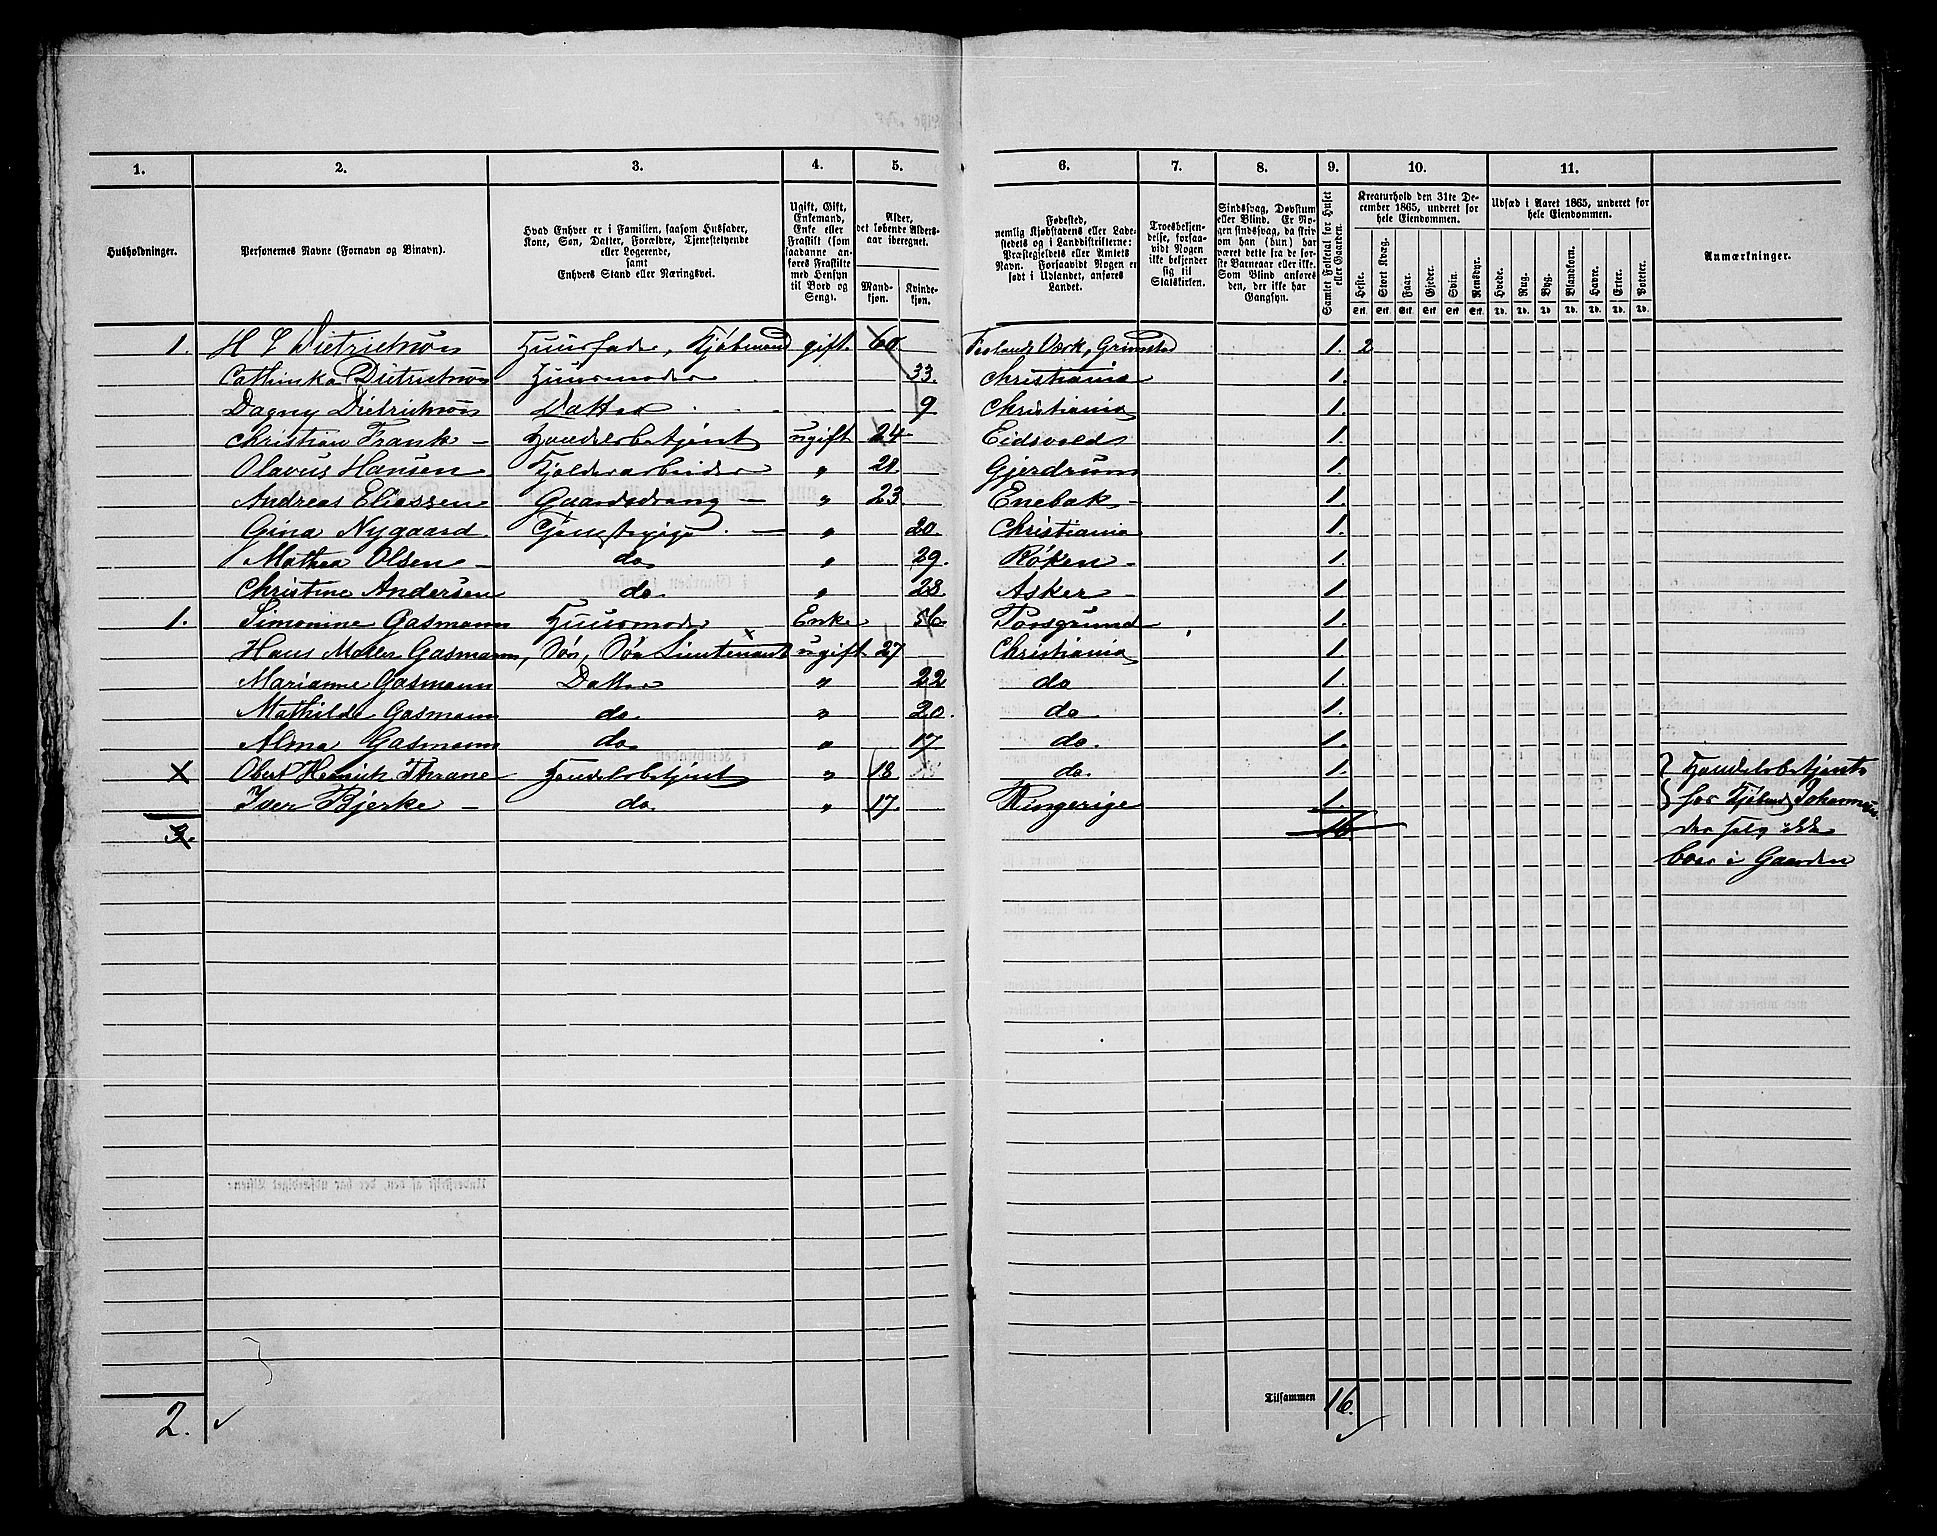 1. 2. 3. 4. 5. 6. 7. 8. 9. 10. 11.
Husholdninger.
Personernes Navne (Fornavn og Binavn).
Hvad Enhver er i Familien, saasom Husfader,
Kone, Søn, Datter, Forældre, Tjenestetyende
eller Logerende,
samt
Enhvers Stand eller Næringsvei.
Ugift, Gift,
Enkemand,
Enke eller
Fraskilt (som
saadanne an-
føres Fraskilte
med Hensyn
til Bord og
Seng).
Alder,
det løbende Alders-
aar iberegnet.
Mand-
kjøn.
Kvinde-
kjøn.
Fødested,
nemlig Kjøbstadens eller Lade-
stedets og i Landdistrikterne:
Præstegjeldets eller Amtets
Navn. Forsaavidt Nogen er
født i Udlandet, anføres
Landet.
Troesbekjen-
delse, forsaa-
vidt Nogen
ikke bekjender
sig til
Statskirken.
Sindssvag, Døvstum
eller Blind. Er No-
gen sindssvag, da skriv
om han (hun) har
været dette fra de før-
ste Barneaar eller ikke.
Som Blind anføres
den, der ikke har
Gangsyn.
Samlet Folketal for Huset
eller Gaarden.
Kreaturhold den 31te De-
cember 1865, underet for
hele Eiendommen.
Heste. Stort Kvæg. Faar. Gjeder. Svin. Rensdyr.
Stk. Stk. Stk. Stk. Stk. Stk.
Udsæd i Aaret 1865, underet for
hele Eiendommen.
Hvede. Rug. Byg. Blandkorn. Havre. Erter. Poteter.
Td. Td. Td. Td. Td. Td. Td.
Anmærkninger.
1. H C Dietrichson Huusfader, Kjøbmand gift 60. Grimstad 1. 2
Cathinka Dietrichson Huusmoder 33. Christiania 1.
Dagny Dietrichson Datter 9 Christiania 1.
Christian Frank – Handelsbetjent ugift 24 Eidsvold 1.
Olavus Hansen Kjelderarbeider " 21 Gjerdrum 1.
Andreas Eliassen Gaardsdreng – " 23. Enebak – 1.
Gina Nygaard Tjenestepige – " 20. Christiania 1.
Mathea Olsen – do " 29. Røken – 1.
Christine Andersen do " 28. Asker – 1.
1. Simonine Gasmann Huusmoder Enke 56. Porsgrund 1.
Hans Møller Gasmann, Søn, Søn Lieutenant ugift 27 Christiania 1
Marianne Gasmann Datter " 22 do 1.
Mathilde Gasmann do. " 20. do 1.
Alma Gasmann do. " 17 do. 1.
X Obert Heinrich Thrane Handelsbetjent " 18 do. 1. Handelsbetjente
Iver Bjerke – do. " 17. Ringerige 1. for Kjøbmd Johannesen
3. 16. der selv ikke
boer i Gaarden
Tilsammen 16.
2.